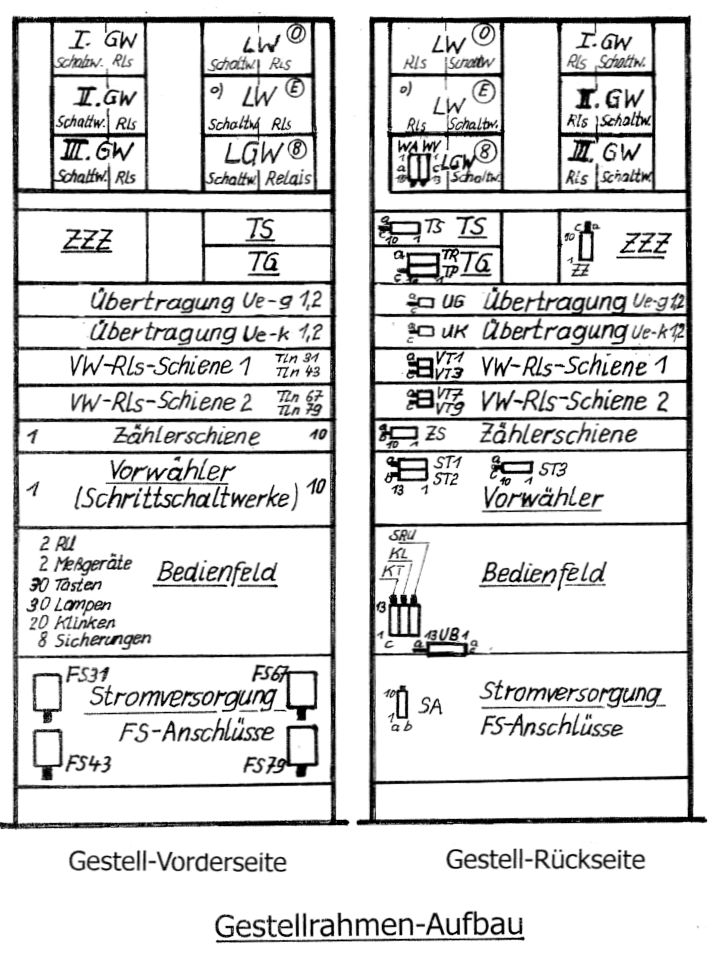 I. GW
Schaltw. Rls
LW O
Schaltw. Rls
II. GW
Schaltw. Rls
o) LW E
Schaltw. Rls
III. GW
Schaltw. Rls
LGW 8
Schaltw. Relais
ZZZ
TS
TG
Übertragung Ue-g 1,2
Übertragung Ue-k 1,2
VW-Rls-Schiene 1 Tln 31
Tln 43
VW-Rls-Schiene 2 Tln 67
Tln 79
1 Zählerschiene 10
Vorwähler
1 (Schrittschaltwerke) 10
2 RU
2 Meßgeräte
30 Tasten
30 Lampen
20 Klinken
8 Sicherungen
Bedienfeld
FS31 FS67
Stromversorgung
FS-Anschlüsse
FS43 FS79
Gestell-Vorderseite
LW O
Rls Schaltw
I. GW
Rls Schaltw.
o) LW E
Rls Schaltw.
II. GW
Rls Schaltw.
WA WV
1 1
a c
13 13
LGW 8
Schaltw.
III. GW
Rls Schaltw.
a
c 10 1 TS TS
a TR
c 10 1 TP TG
c a
10
1
ZZ
ZZZ
a
c UG Übertragung Ue-g 1,2
a
c UK Übertragung Ue-k 1,2
a VT1
c VT3 VW-Rls-Schiene 1
a VT7
c VT9 VW-Rls-Schiene 2
a
b 10 1 ZS Zählerschiene
a ST1
b ST2
13 1
a
c 10 1 ST3
Vorwähler
SRU
KL
KT
13
1
c
Bedienfeld
a 13 UB 1 a
c c
10
1
a b
SA
Stromversorgung
FS-Anschlüsse
Gestell-Rückseite
Gestellrahmen-Aufbau